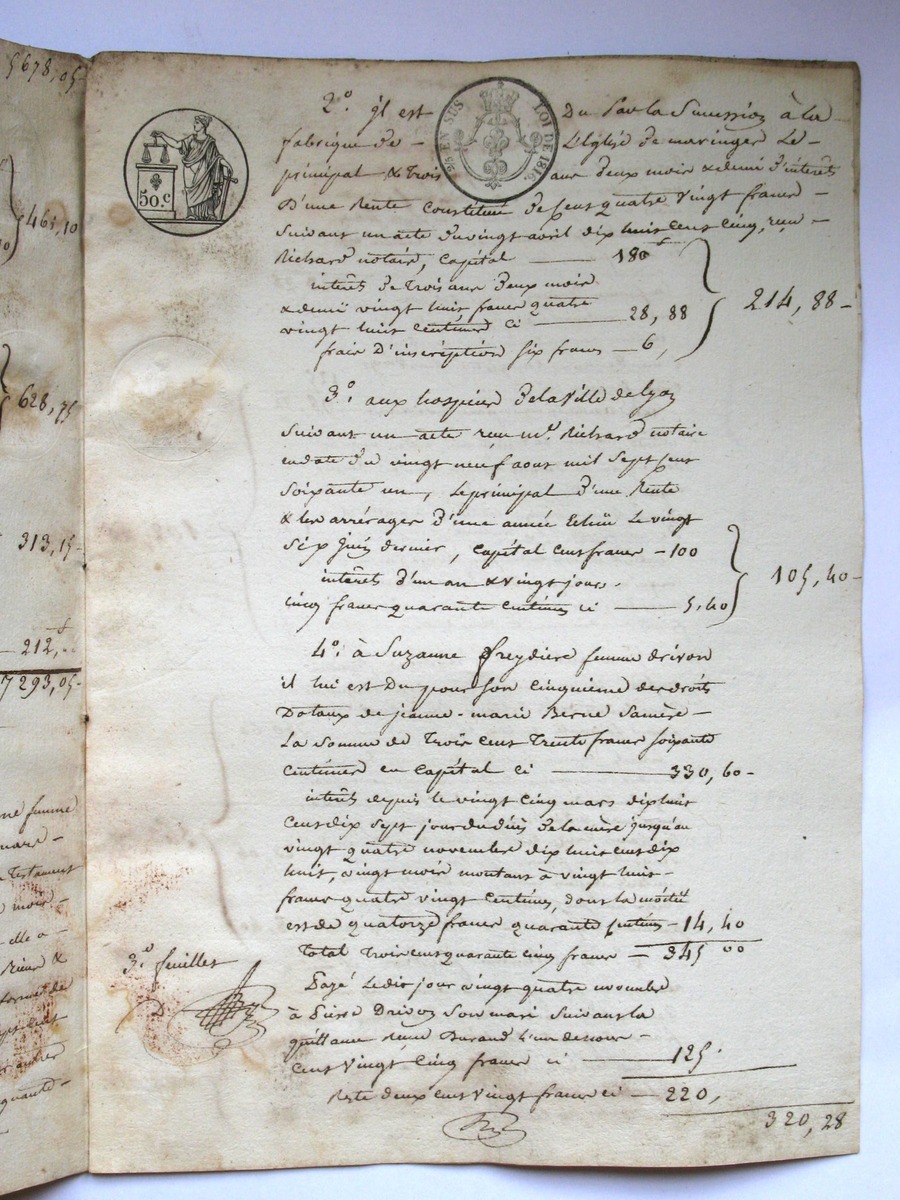 5678,05-
461,10
628,75
313,15-
212,
7293,05-
50.c
25 EN SUS
LOI DE 1816
2°. il est Du Par la Sucession à la
fabrique de - L'Eglise de maringes Le -
principal & trois ans deux mois & demi d'interets
D'une Rente Constituée de Cent quatre Vingt francs -
Suivant un acte du vingt avril dix huit Cent Cinq, reçu -
Richard notaire, Capital 180 f
interets de trois ans deux mois
& demi vingt huit francs quatre
vingt huit Centimes Ci 28,88
frais D'inscription Six francs - 6,
214,88-
3°. aux hospices de la Ville de lyon
Suivant un acte reçu me. Richard notaire
en date du vingt neuf aout mil Sept Cent
Soixante un, Le principal d'une Rente
& les arrérages d'une année Echue Le vingt
Six Juin dernier, Capital Cent francs - 100
interets d'un an & vingt jours -
Cinq francs quarante Centimes ci 5,40
105,40-
4°. à Suzanne freydiere femme drivon
il lui est Du pour Son Cinquieme des droits
Dotaux de jeanne-marie Berne Sa mère -
La Somme de Trois Cent Trente francs Soixante
Centimes en Capital Ci 330,60-
interets depuis le vingt Cinq mars dix huit
Cent dix Sept jour du décès de la mère jusqu'au
vingt quatre novembre dix huit cent dix
huit, vingt mois montant à vingt huit -
francs quatre vingt Centimes, dont la moitié
est de quatorze francs quarante Centimes - 14,40
Total Trois cent quarante cinq francs - 345 00
3e. feuillet
Payé Le dit jour vingt quatre novembre
à Pierre Drivon Son mari Suivant la
quittance reçue Durand -
Cent Vingt Cinq francs ci 125.
Reste deux cent vingt francs ci - 220,
320,28
femme
Testament
mois -
elle a -
&
quante -